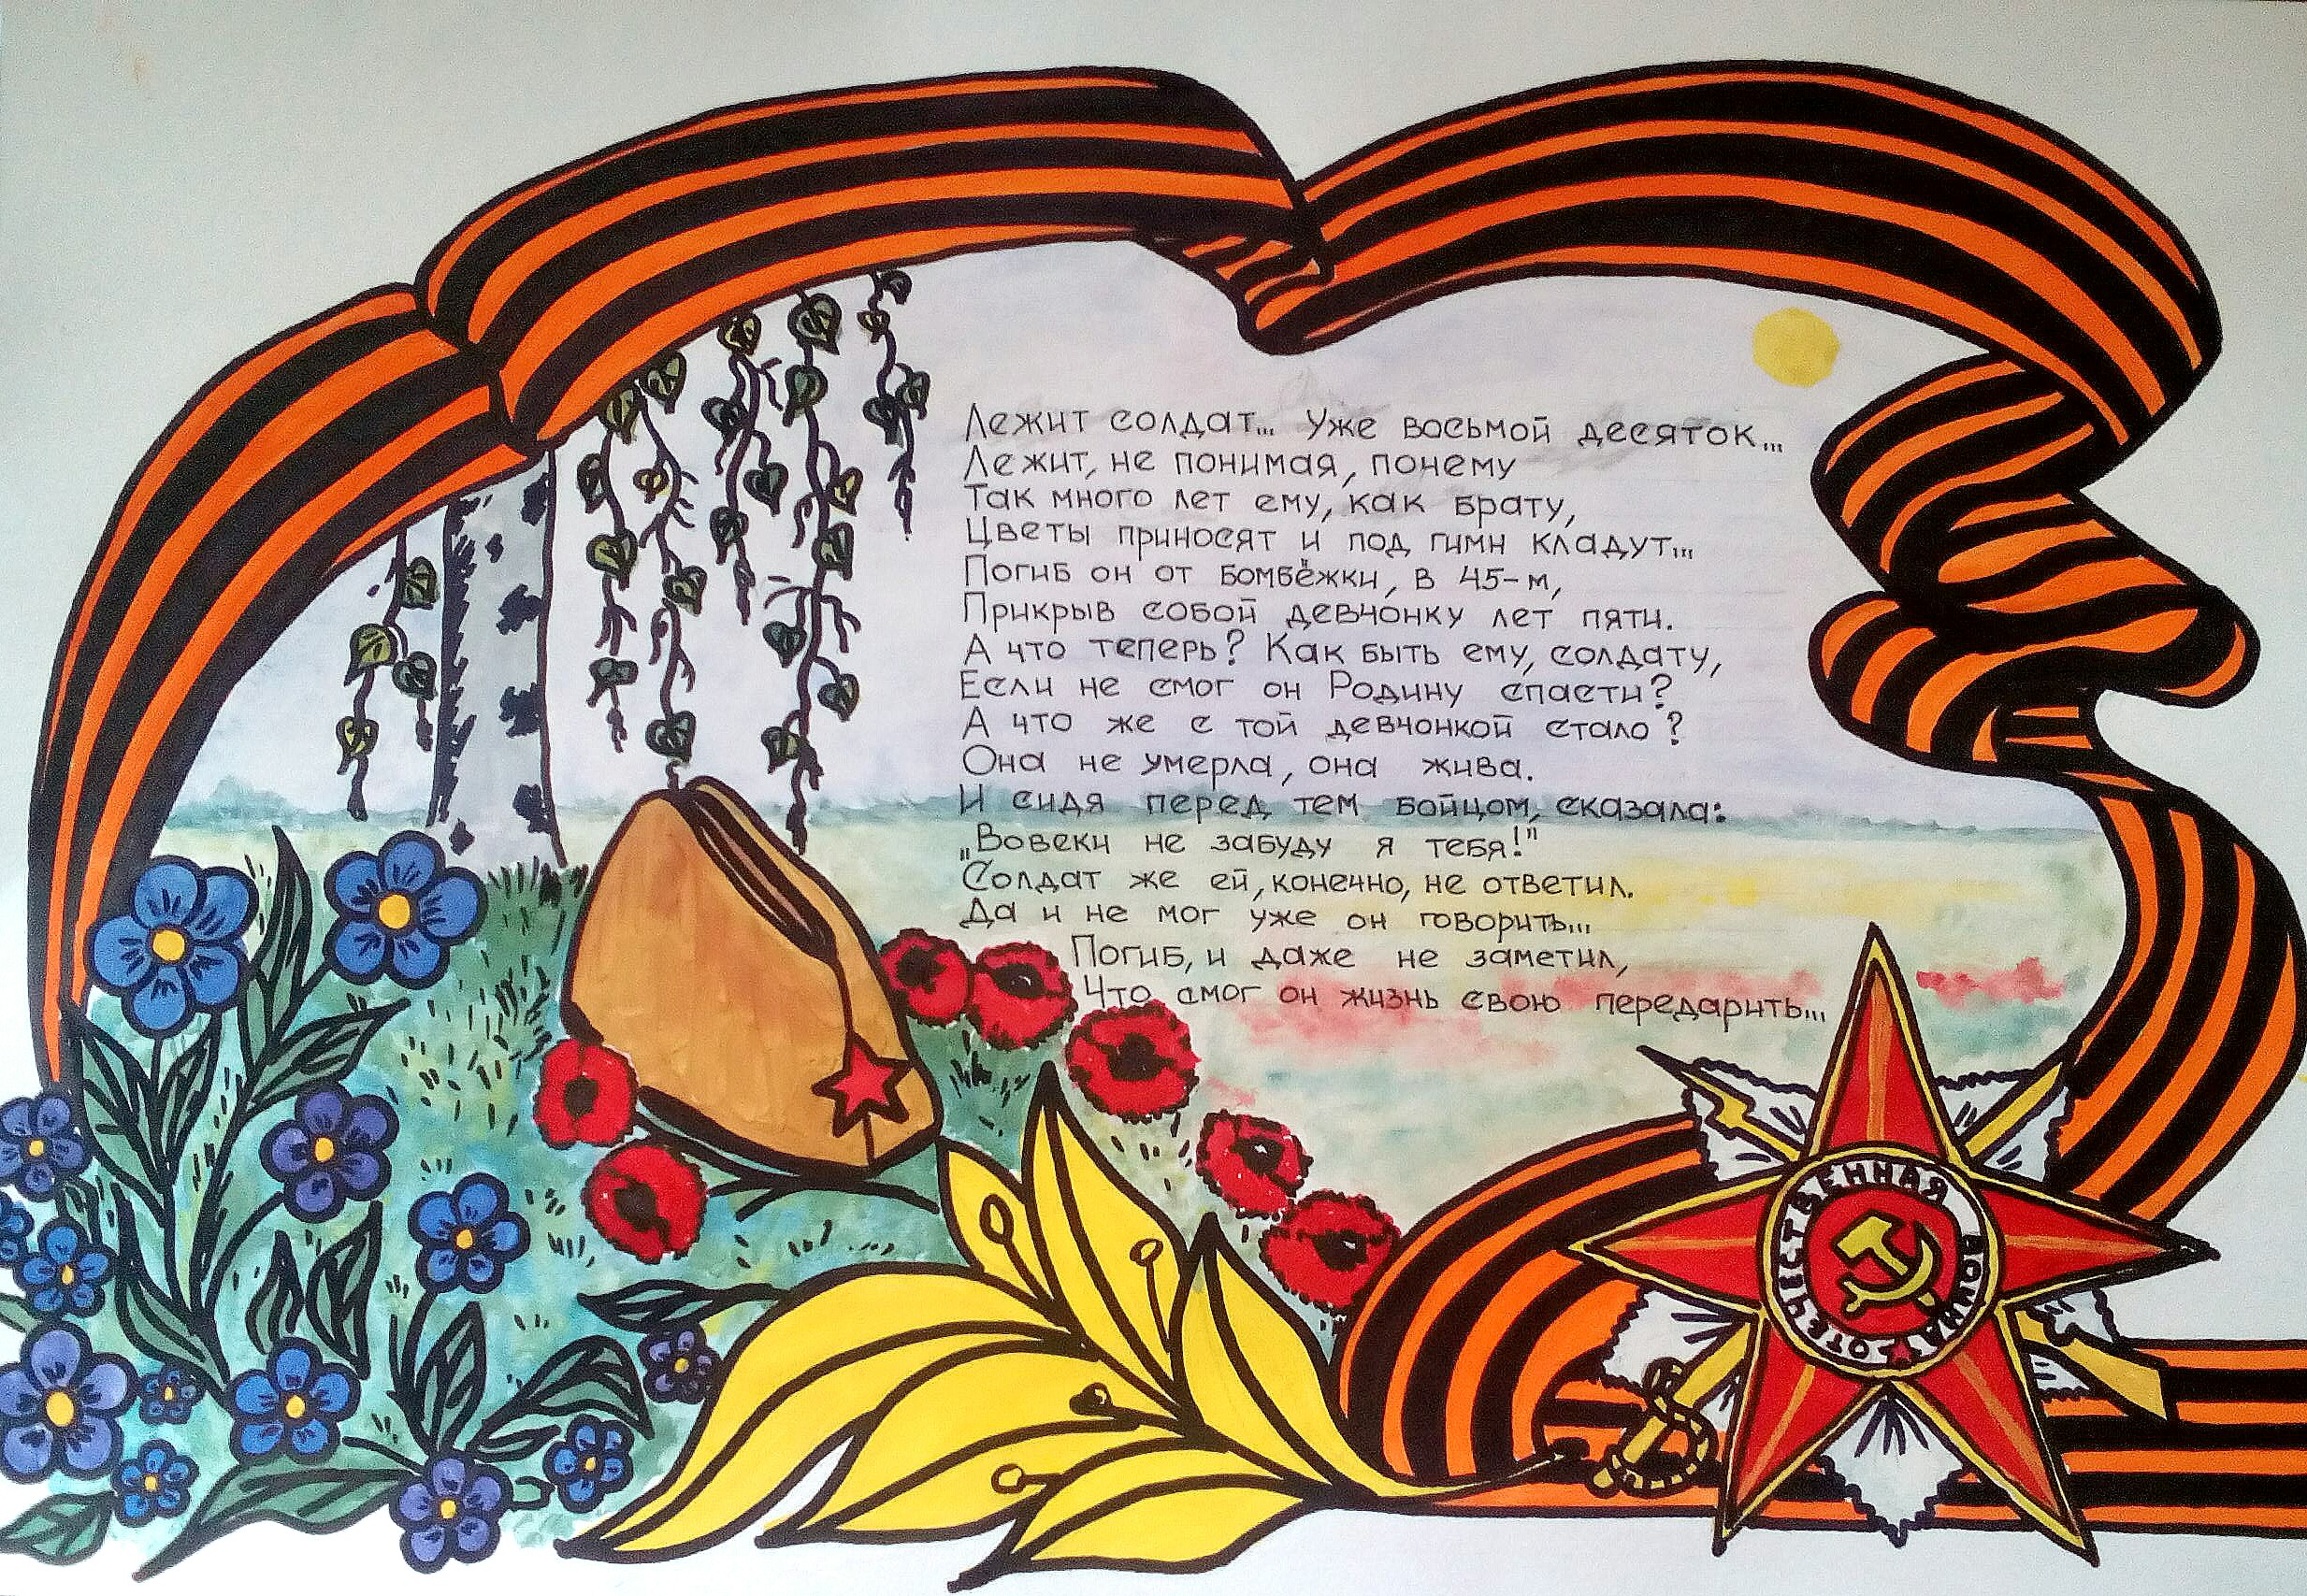 Лежит солдат... Уже восьмой десяток...
Лежит, не понимая, почему
Так много лет ему, как брату,
Цветы приносят и под гимн кладут...
Погиб он от бомбёжки, в 45-м,
Прикрыв собой девчонку лет пяти.
А что теперь? Как быть ему, солдату,
Если не смог он Родину спасти?
А что же с той девчонкой стало?
Она не умерла, она жива.
И сидя перед тем бойцом, сказала:
„Вовеки не забуду я тебя!"
Солдат же ей, конечно, не ответил.
Да и не мог уже он говорить...
Погиб, и даже не заметил,
Что смог он жизнь свою передарить...
ОТЕЧЕСТВЕННАЯ ВОЙНА